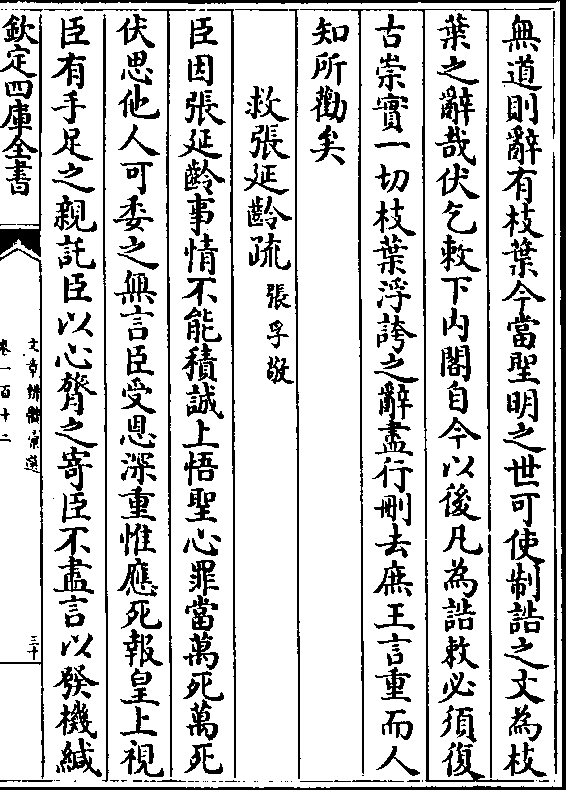 無道則辭有枝葉今當聖明之世可使制誥之文為枝
葉之辭哉伏乞敕下内閣自今以後凡為誥敕必須復
古崇實一切枝葉浮誇之辭盡行刪去庶王言重而人
知所勸矣
救張延齡疏 張孚敬
臣因張延齡事情不能積誠上悟聖心罪當萬死萬死
伏思他人可委之無言臣受恩深重惟應死報皇上視
臣有手足之親託臣以心膂之寄臣不盡言以發機緘
欽定四庫全書
文章辨體彙選
卷一百十二
三十